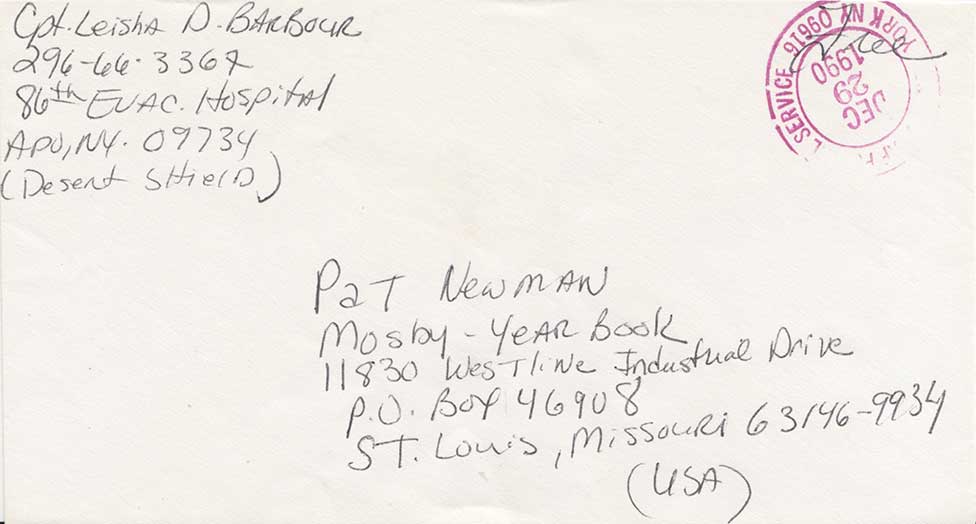 Cpt. Leisha D. Barbour
86th Evac. Hospital
APO, NY. 09734
(Desert Shield)
Free
SERVICE 09616
YORK NY
DEC
29
1990
Pat Newman
Mosby - Year Book
11830 Westline Industrial Drive
P.O. Box 46908
St. Louis, Missouri 63146-9934
(USA)